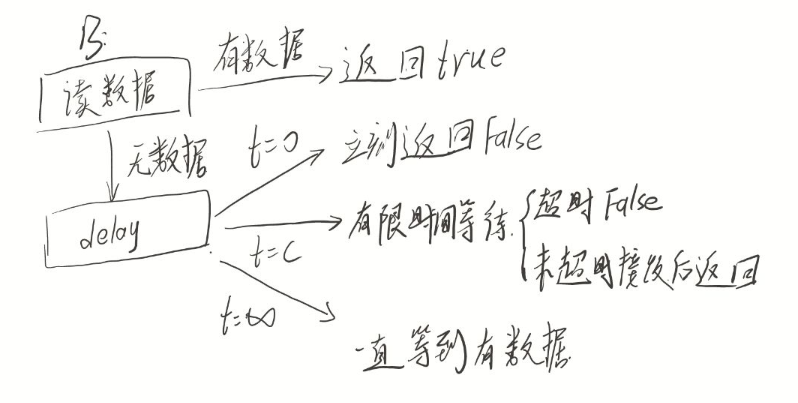 B:
读数据
有数据
返回true
无数据
t=0
立刻返回False
delay
t=C
有限时间等待
超时False
未超时接收后返回
t=∞
一直等到有数据